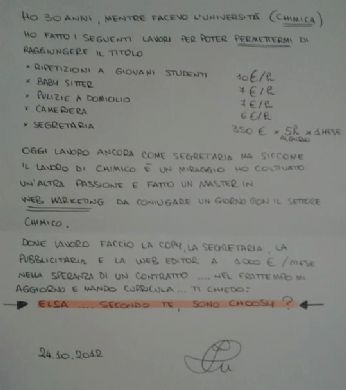 HO 30 ANNI, MENTRE FACEVO L'UNIVERSITÀ (CHIMICA)
HO FATTO I SEGUENTI LAVORI PER POTER PERMETTERMI DI
RAGGIUNGERE IL TITOLO
* RIPETIZIONI A GIOVANI STUDENTI 10 €/h
* BABY SITTER 7 €/h
* PULIZIE A DOMICILIO 7 €/h
* CAMERIERA 6 €/h
* SEGRETARIA 350 € x 5h AL GIORNO x 1 MESE
OGGI LAVORO ANCORA COME SEGRETARIA MA SICCOME
IL LAVORO DI CHIMICO È UN MIRAGGIO HO COLTIVATO
UN'ALTRA PASSIONE E FATTO UN MASTER IN
WEB MARKETING DA CONIUGARE UN GIORNO CON IL SETTORE
CHIMICO.
DOVE LAVORO FACCIO LA COPY, LA SEGRETARIA, LA
PUBBLICITARIA E LA WEB EDITOR A 1000 €/MESE
NELLA SPERANZA DI UN CONTRATTO .... NEL FRATTEMPO MI
AGGIORNO E MANDO CURRICULA... TI CHIEDO:
ELSA .... SECONDO TE, SONO CHOOSY?
24.10.2012